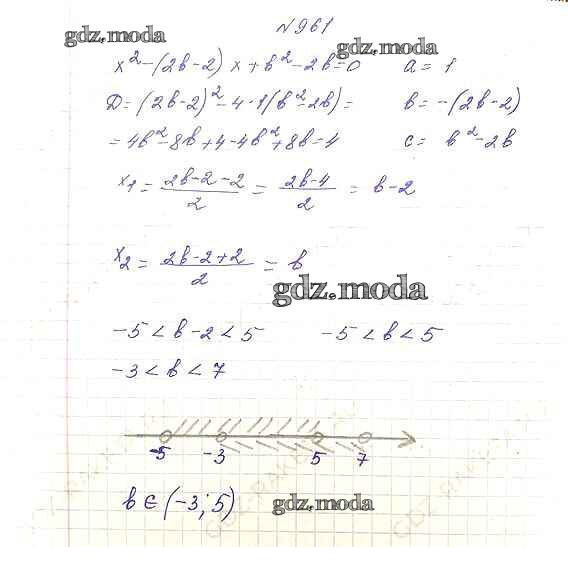 №961
gdz.moda
gdz.moda
x²-(2b-2)x+b²-2b=0 a=1
D=(2b-2)²-4·1(b²-2b)= b=-(2b-2)
=4b²-8b+4-4b²+8b=4 c=b²-2b
x₁=(2b-2-2)/2=(2b-4)/2=b-2
x₂=(2b-2+2)/2=b
gdz.moda
-5<b-2<5 -5<b<5
-3<b<7
-5 -3 5 7
b∈(-3;5) gdz.moda